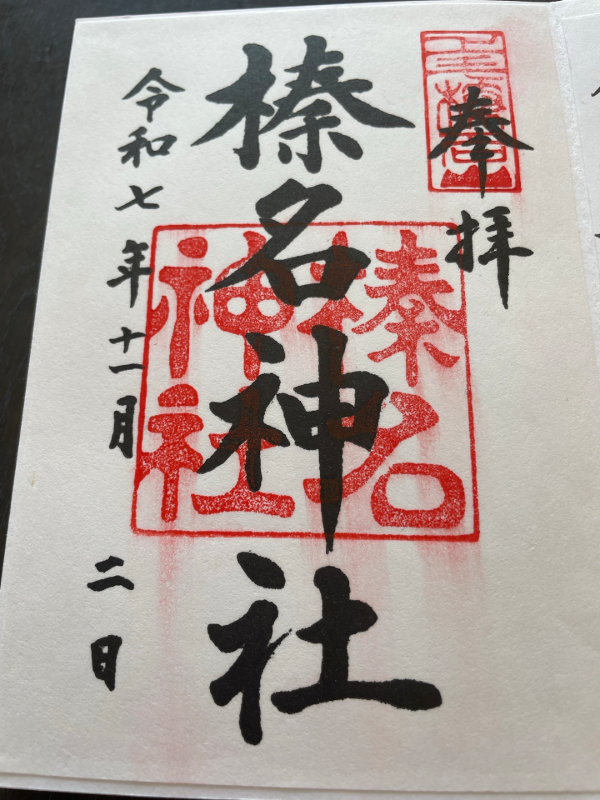 奉拝
榛名神社
榛名神社
令和七年十一月二日